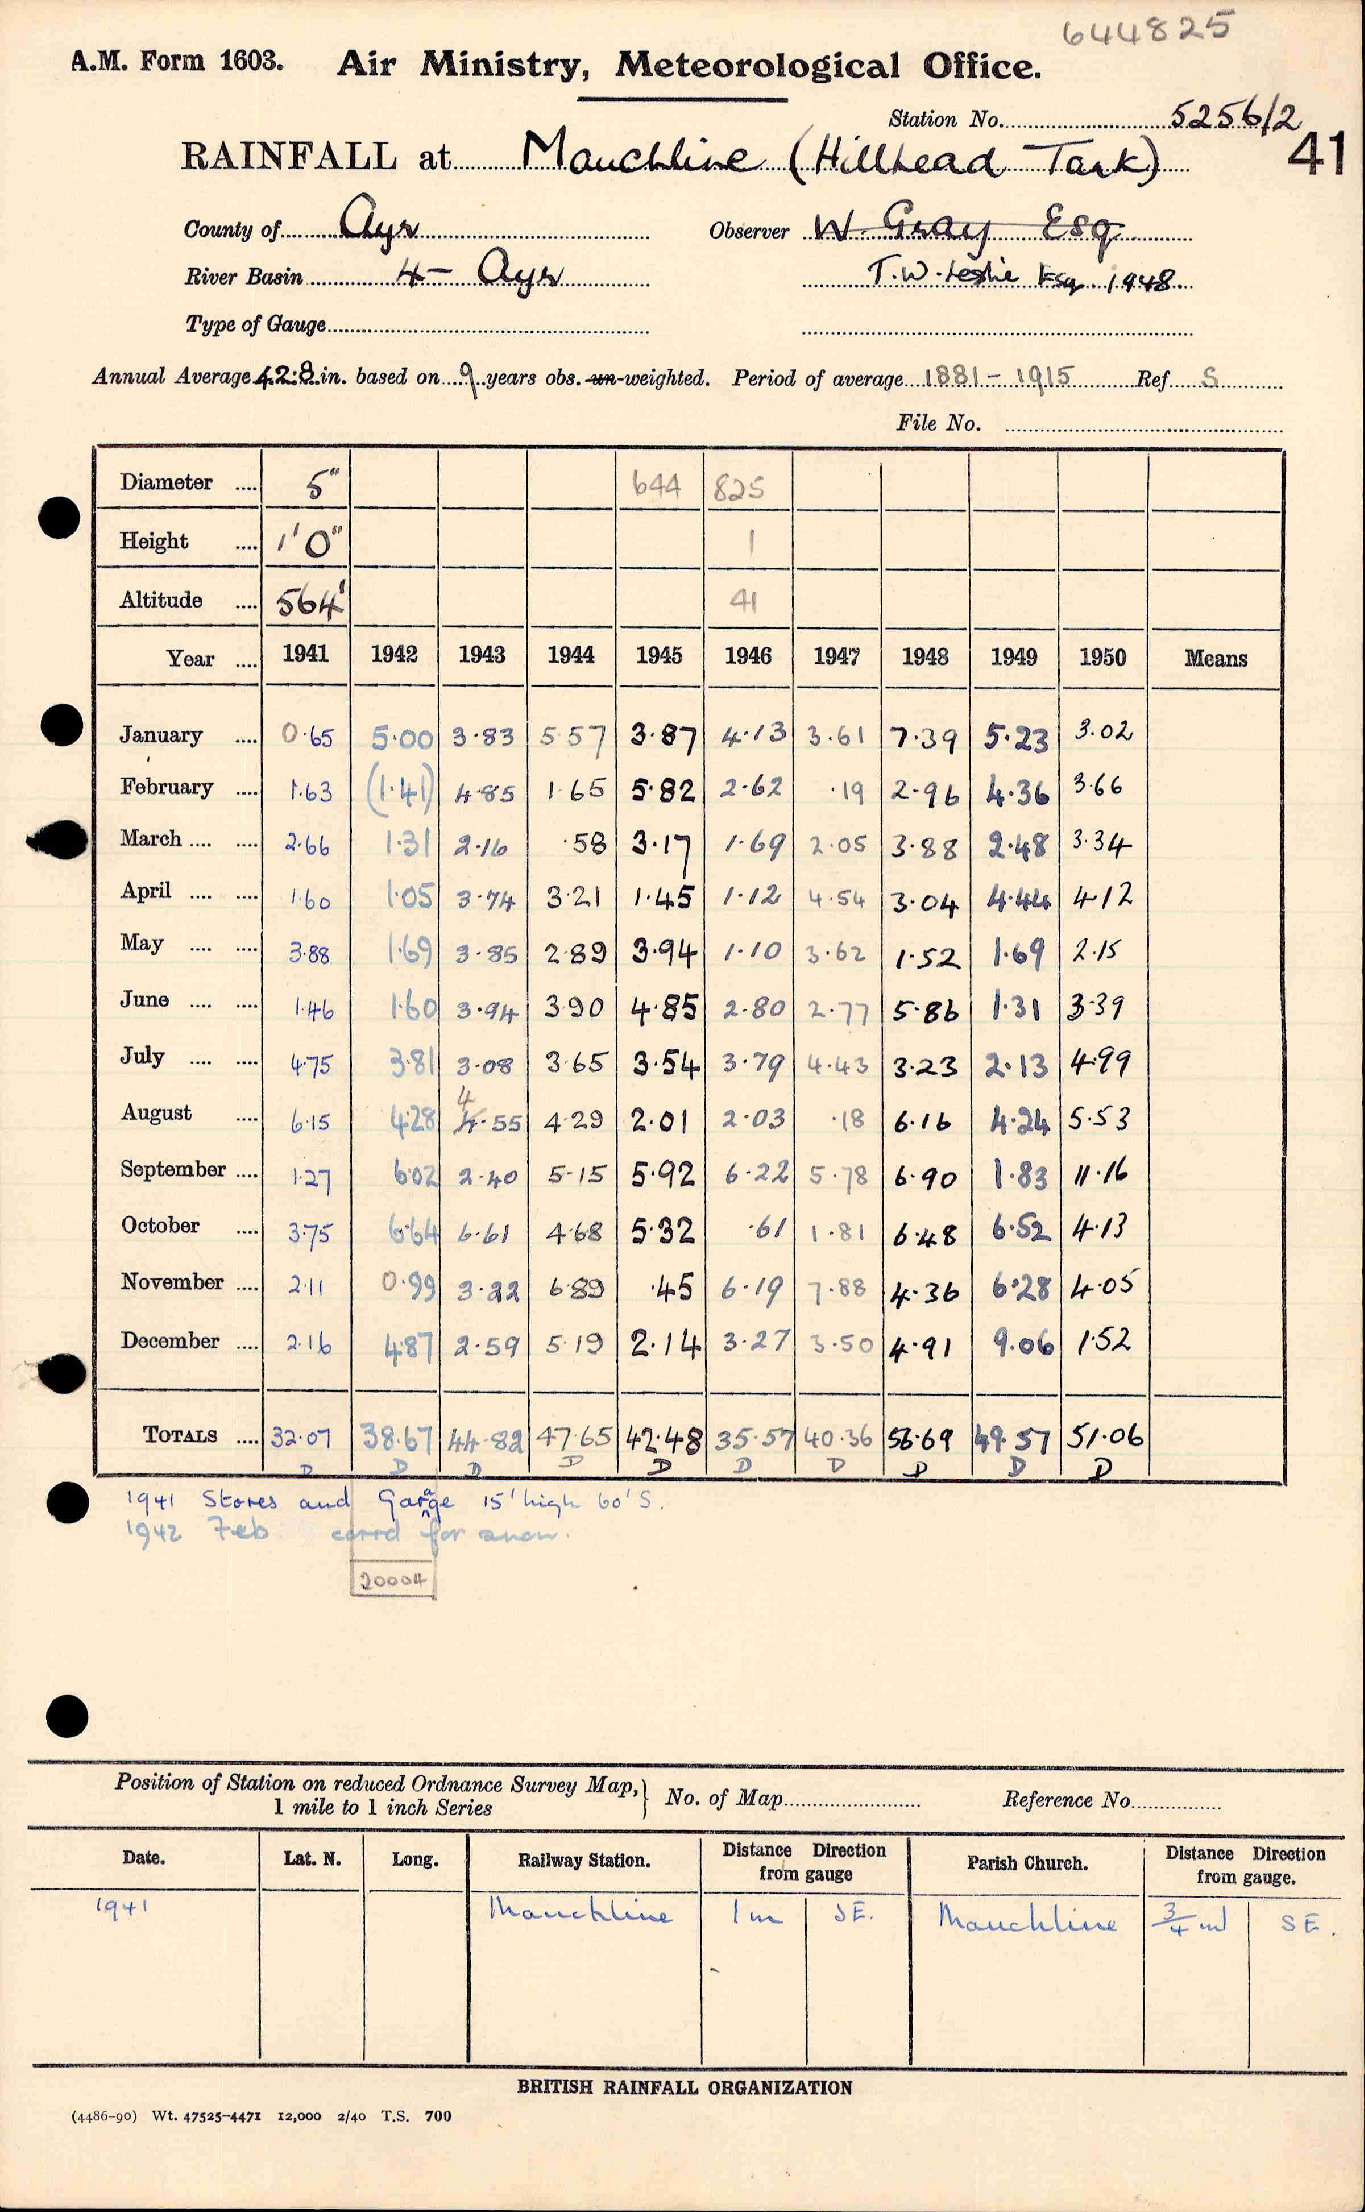 644825
A.M. Form 1603. Air Ministry, Meteorological Office.
Station No. 5256/2
41
RAINFALL at Mauchline (Hillhead Tank)
County of Ayr Observer W. Gray Esq
River Basin 4 - Ayr T.W. Leslie Esq 1948
Type of Gauge
Annual Average 42.8 in. based on 9 years obs. un-weighted. Period of average 1881-1915 Ref S
File No.
Diameter .... 5" 644 825
Height .... 1'0" 1
Altitude .... 564' 41
Year .... 1941 1942 1943 1944 1945 1946 1947 1948 1949 1950 Means
January .... 0.65 5.00 3.83 5.57 3.87 4.13 3.61 7.39 5.23 3.02
February .... 1.63 (1.41) 4.85 1.65 5.82 2.62 .19 2.96 4.36 3.66
March .... .... 2.66 1.31 2.16 .58 3.17 1.69 2.05 3.88 2.48 3.34
April .... .... 1.60 1.05 3.74 3.21 1.45 1.12 4.54 3.04 4.44 4.12
May .... .... 3.88 1.69 3.85 2.89 3.94 1.10 3.62 1.52 1.69 2.15
June .... .... 1.46 1.60 3.94 3.90 4.85 2.80 2.77 5.86 1.31 3.39
July .... .... 4.75 3.81 3.08 3.65 3.54 3.79 4.43 3.23 2.13 4.99
August .... 6.15 4.28 4.55 4.29 2.01 2.03 .18 6.16 4.24 5.53
September .... 1.27 6.02 2.40 5.15 5.92 6.22 5.78 6.90 1.83 11.16
October .... 3.75 6.64 6.61 4.68 5.32 .61 1.81 6.48 6.52 4.13
November .... 2.11 0.99 3.22 6.89 .45 6.19 7.88 4.36 6.28 4.05
December .... 2.16 4.87 2.59 5.19 2.14 3.27 3.50 4.91 9.06 1.52
TOTALS .... 32.07 38.67 44.82 47.65 42.48 35.57 40.36 56.69 49.57 51.06
D D D D D D D D D D
1941 Stores and Garage 15' high 60' S.
1942 Feb corrd for snow.
20004
Position of Station on reduced Ordnance Survey Map, 1 mile to 1 inch Series } No. of Map Reference No.
Date. Lat. N. Long. Railway Station. Distance Direction from gauge Parish Church. Distance Direction from gauge.
1941 Mauchline 1 m SE. Mauchline 3/4 ml SE.
BRITISH RAINFALL ORGANIZATION
(4486-90) Wt. 47525-4471 12,000 2/40 T.S. 700